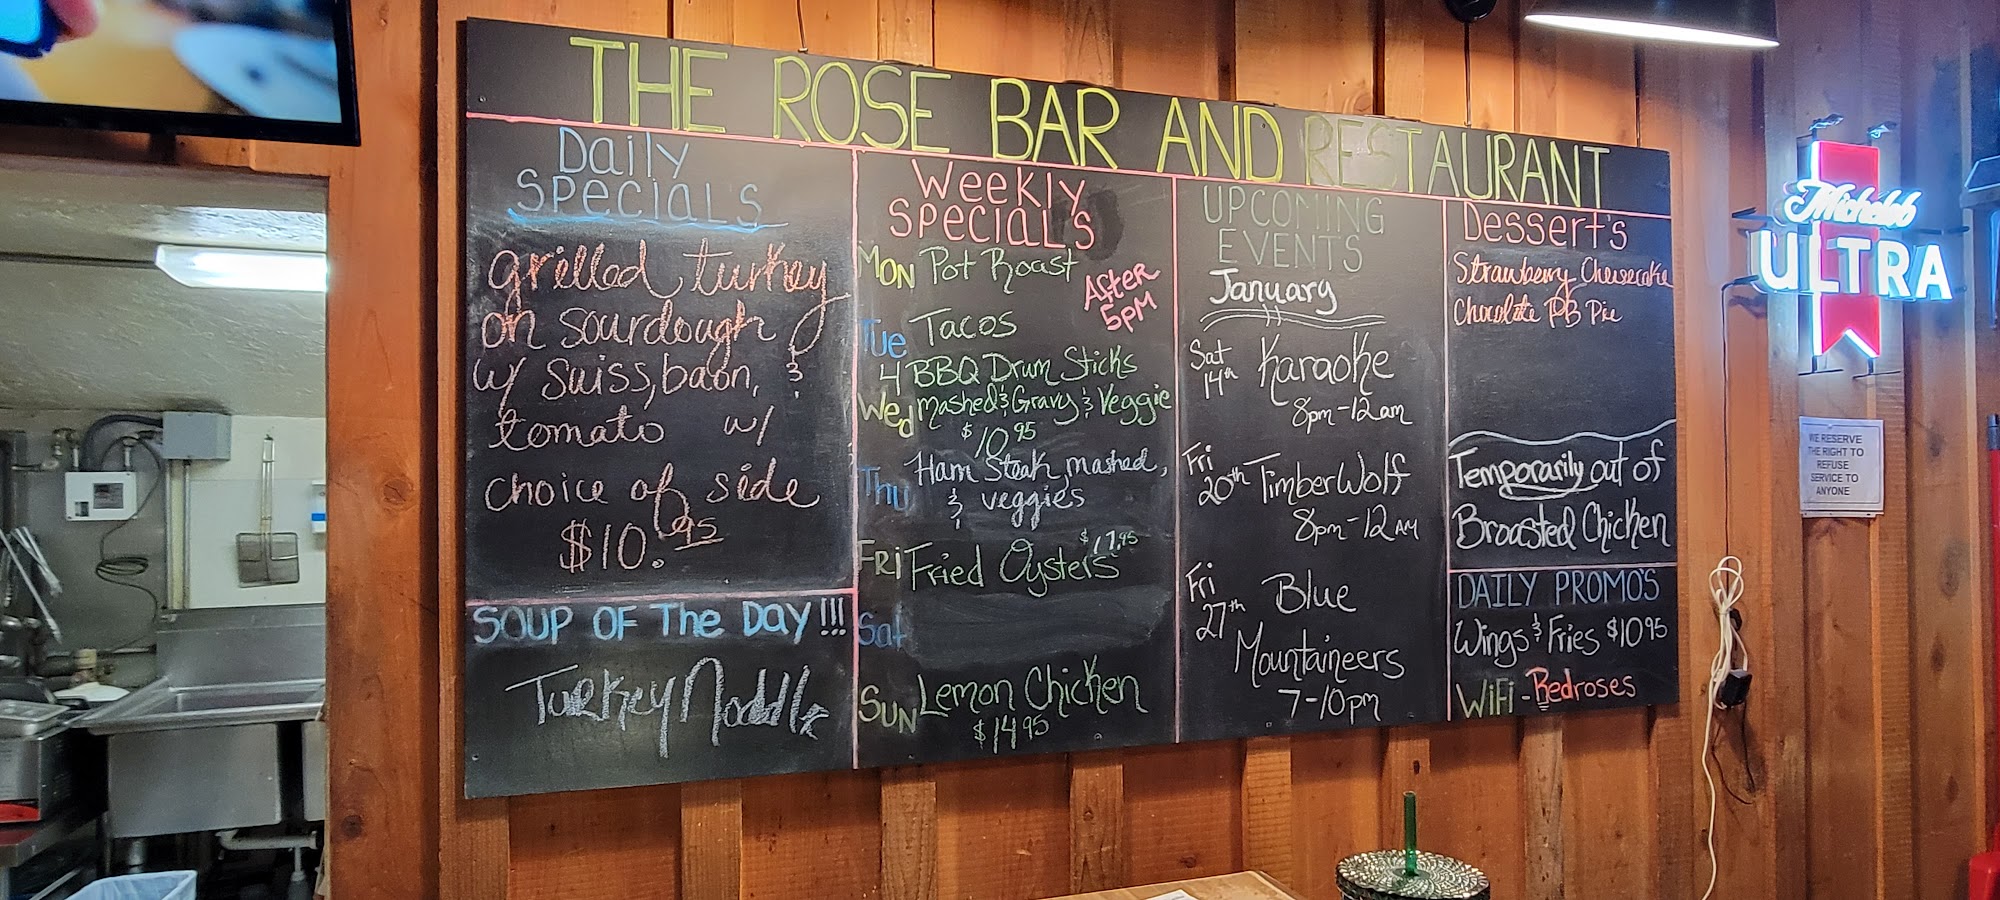 THE ROSE BAR AND RESTAURANT
Daily
SPECIALS
grilled turkey
on sourdough
w/ suiss, bacon, &
tomato w/
choice of side
$10.95
SOUP OF THE DAY!!!
Turkey Noddle
WEEKLY
SPECIALS
MON Pot Roast
AFTER
5PM
Tue Tacos
4 BBQ Drum Sticks
Wed Mashed & Gravy & Veggie
$10.95
Thu Ham Steak, mashed,
& veggies
FRI Fried Oysters $17.95
Sat
SUN Lemon Chicken
$14.95
UPCOMING
EVENTS
January
Sat
14th Karaoke
8pm-12am
Fri
20th TimberWolf
8pm-12AM
Fri
27th Blue
Mountaineers
7-10pm
Dessert's
Strawberry Cheesecake
Chocolate PB Pie
Temporarily out of
Broasted Chicken
DAILY PROMO'S
Wings & Fries $10.95
WiFi - Redroses
Michelob
ULTRA
WE RESERVE
THE RIGHT TO
REFUSE
SERVICE TO
ANYONE